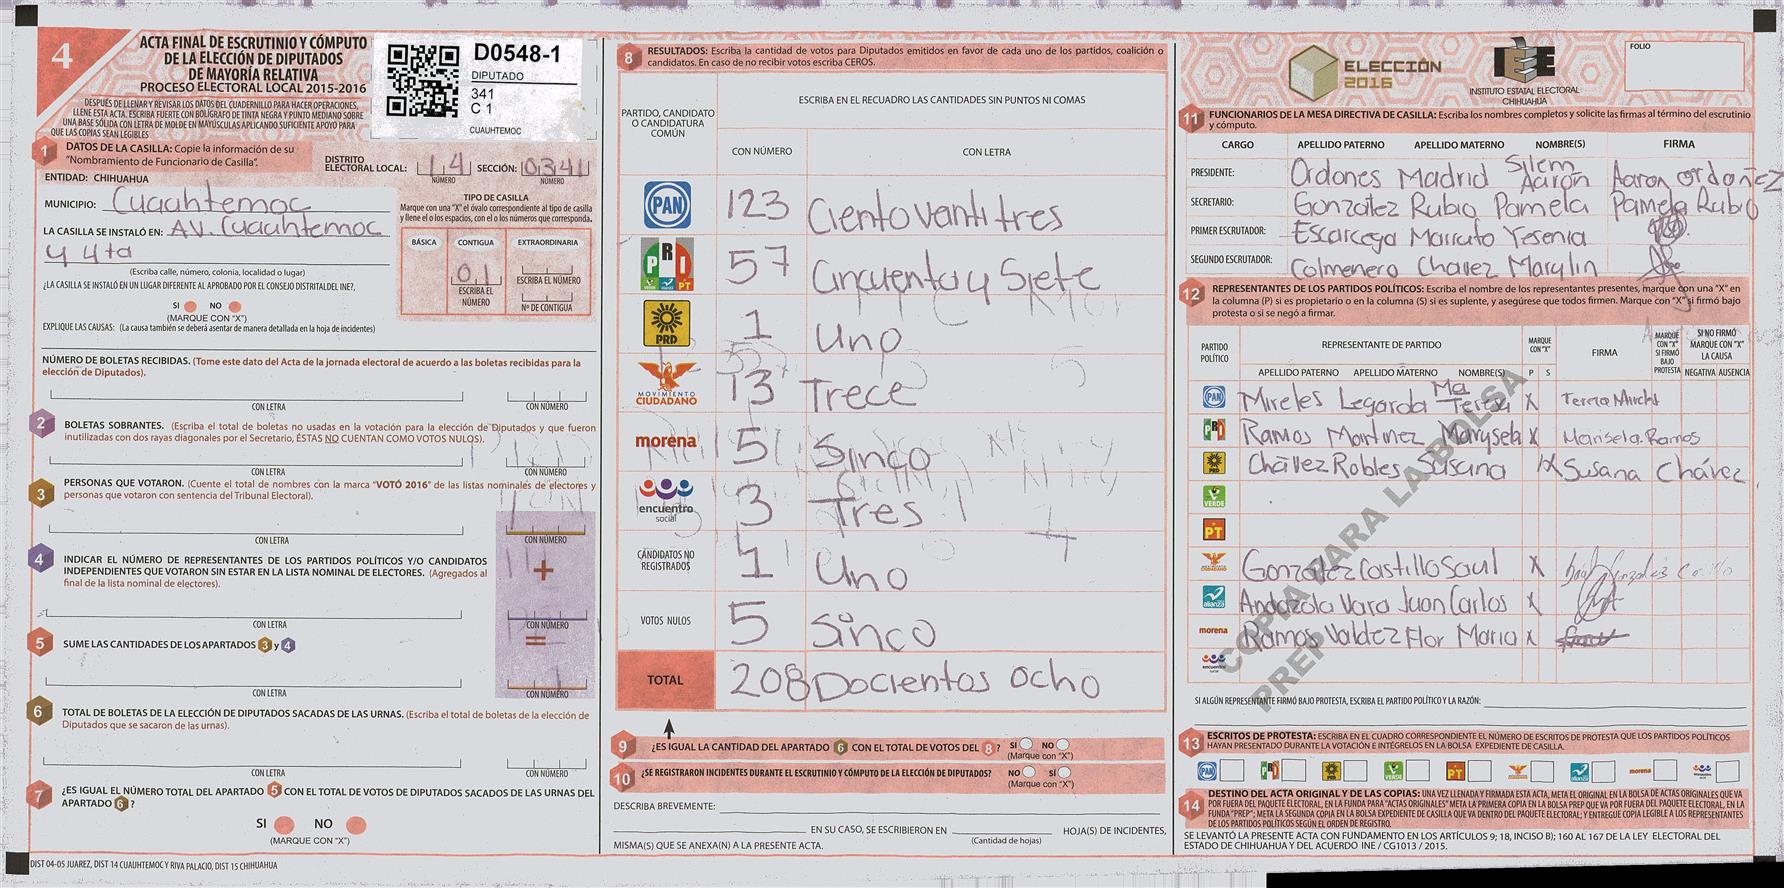 4
ACTA FINAL DE ESCRUTINIO Y CÓMPUTO
DE LA ELECCIÓN DE DIPUTADOS
DE MAYORÍA RELATIVA
PROCESO ELECTORAL LOCAL 2015-2016
DESPUÉS DE LLENAR Y REVISAR LOS DATOS DEL CUADERNILLO PARA HACER OPERACIONES,
LLENE ESTA ACTA. ESCRIBA FUERTE CON BOLÍGRAFO DE TINTA NEGRA Y PUNTO MEDIANO SOBRE
UNA BASE SÓLIDA CON LETRA DE MOLDE EN MAYÚSCULAS APLICANDO SUFICIENTE APOYO PARA
QUE LAS COPIAS SEAN LEGIBLES
D0548-1
DIPUTADO
341
C 1
CUAUHTEMOC
1 DATOS DE LA CASILLA: Copie la información de su
"Nombramiento de Funcionario de Casilla".
DISTRITO
ELECTORAL LOCAL: 14 SECCIÓN: 0341
NÚMERO NÚMERO
ENTIDAD: CHIHUAHUA
MUNICIPIO: Cuauhtemoc
LA CASILLA SE INSTALÓ EN: AV. Cuauhtemoc
y 4ta
(Escriba calle, número, colonia, localidad o lugar)
¿LA CASILLA SE INSTALÓ EN UN LUGAR DIFERENTE AL APROBADO POR EL CONSEJO DISTRITAL DEL INE?,
SI NO
(MARQUE CON "X")
EXPLIQUE LAS CAUSAS: (La causa también se deberá asentar de manera detallada en la hoja de incidentes)
TIPO DE CASILLA
Marque con una "X" el óvalo correspondiente al tipo de casilla
y llene el o los espacios, con el o los números que corresponda.
BÁSICA CONTIGUA EXTRAORDINARIA
01
ESCRIBA EL
NÚMERO
ESCRIBA EL NÚMERO
Nº DE CONTIGUA
NÚMERO DE BOLETAS RECIBIDAS. (Tome este dato del Acta de la jornada electoral de acuerdo a las boletas recibidas para la
elección de Diputados).
CON LETRA CON NÚMERO
2 BOLETAS SOBRANTES. (Escriba el total de boletas no usadas en la votación para la elección de Diputados y que fueron
inutilizadas con dos rayas diagonales por el Secretario, ÉSTAS NO CUENTAN COMO VOTOS NULOS).
CON LETRA CON NÚMERO
3 PERSONAS QUE VOTARON. (Cuente el total de nombres con la marca "VOTÓ 2016" de las listas nominales de electores y
personas que votaron con sentencia del Tribunal Electoral).
CON LETRA CON NÚMERO
4 INDICAR EL NÚMERO DE REPRESENTANTES DE LOS PARTIDOS POLÍTICOS Y/O CANDIDATOS
INDEPENDIENTES QUE VOTARON SIN ESTAR EN LA LISTA NOMINAL DE ELECTORES. (Agregados al
final de la lista nominal de electores).
+
CON LETRA CON NÚMERO
5 SUME LAS CANTIDADES DE LOS APARTADOS 3 y 4
=
CON LETRA CON NÚMERO
6 TOTAL DE BOLETAS DE LA ELECCIÓN DE DIPUTADOS SACADAS DE LAS URNAS. (Escriba el total de boletas de la elección de
Diputados que se sacaron de las urnas).
CON LETRA CON NÚMERO
7 ¿ES IGUAL EL NÚMERO TOTAL DEL APARTADO 5 CON EL TOTAL DE VOTOS DE DIPUTADOS SACADOS DE LAS URNAS DEL
APARTADO 6?
SI NO
(MARQUE CON "X")
DIST 04-05 JUAREZ, DIST 14 CUAUHTEMOC Y RIVA PALACIO, DIST 15 CHIHUAHUA
8 RESULTADOS: Escriba la cantidad de votos para Diputados emitidos en favor de cada uno de los partidos, coalición o
candidatos. En caso de no recibir votos escriba CEROS.
PARTIDO, CANDIDATO
O CANDIDATURA
COMÚN
ESCRIBA EN EL RECUADRO LAS CANTIDADES SIN PUNTOS NI COMAS
CON NÚMERO CON LETRA
PAN 123 Ciento vantitres
PRI VERDE alianza PT 57 Cincuenta y Siete
PRD 1 Uno
MOVIMIENTO CIUDADANO 13 Trece
morena 5 Sinco
encuentro social 3 Tres
CANDIDATOS NO
REGISTRADOS 1 Uno
VOTOS NULOS 5 Sinco
TOTAL 208 Docientos ocho
9 ¿ES IGUAL LA CANTIDAD DEL APARTADO 6 CON EL TOTAL DE VOTOS DEL 8? SI NO
(Marque con "X")
10 ¿SE REGISTRARON INCIDENTES DURANTE EL ESCRUTINIO Y CÓMPUTO DE LA ELECCIÓN DE DIPUTADOS? NO SÍ
(Marque con "X")
DESCRIBA BREVEMENTE:
EN SU CASO, SE ESCRIBIERON EN HOJA(S) DE INCIDENTES,
(Cantidad de hojas)
MISMA(S) QUE SE ANEXA(N) A LA PRESENTE ACTA.
ELECCIÓN
2016
IEE
INSTITUTO ESTATAL ELECTORAL
CHIHUAHUA
FOLIO
11 FUNCIONARIOS DE LA MESA DIRECTIVA DE CASILLA: Escriba los nombres completos y solicite las firmas al término del escrutinio
y cómputo.
CARGO APELLIDO PATERNO APELLIDO MATERNO NOMBRE(S) FIRMA
PRESIDENTE: Ordones Madrid Silem Aaron Aaron ordoñez
SECRETARIO: Gonzalez Rubio Pamela Pamela Rubio
PRIMER ESCRUTADOR: Escarcega Marruto Yesenia
SEGUNDO ESCRUTADOR: Colmenero Chavez Marylin
12 REPRESENTANTES DE LOS PARTIDOS POLÍTICOS: Escriba el nombre de los representantes presentes, marque con una "X" en
la columna (P) si es propietario o en la columna (S) si es suplente, y asegúrese que todos firmen. Marque con "X" si firmó bajo
protesta o si se negó a firmar.
PARTIDO
POLÍTICO
REPRESENTANTE DE PARTIDO
MARQUE
CON "X"
FIRMA
MARQUE
CON "X"
SI FIRMÓ
BAJO
PROTESTA
SI NO FIRMÓ
MARQUE CON "X"
LA CAUSA
APELLIDO PATERNO APELLIDO MATERNO NOMBRE(S) P S NEGATIVA AUSENCIA
PAN Mireles Legarda Ma Teresa X Teresa Mireles
PRI Ramos Martinez Marysela X Marisela Ramos
PRD Chávez Robles Susana X Susana Chávez
VERDE
PT
Gonzalez Castillo Saul X
alianza Andazola Vara Juan Carlos X
morena Ramos Valdez Flor Maria X
encuentro social
COPIA PARA LA BOLSA
PREP
SI ALGÚN REPRESENTANTE FIRMÓ BAJO PROTESTA, ESCRIBA EL PARTIDO POLÍTICO Y LA RAZÓN:
13 ESCRITOS DE PROTESTA: ESCRIBA EN EL CUADRO CORRESPONDIENTE EL NÚMERO DE ESCRITOS DE PROTESTA QUE LOS PARTIDOS POLÍTICOS
HAYAN PRESENTADO DURANTE LA VOTACIÓN E INTÉGRELOS EN LA BOLSA EXPEDIENTE DE CASILLA.
PAN PRI PRD VERDE PT alianza morena
14 DESTINO DEL ACTA ORIGINAL Y DE LAS COPIAS: UNA VEZ LLENADA Y FIRMADA ESTA ACTA, META EL ORIGINAL EN LA BOLSA DE ACTAS ORIGINALES QUE VA
POR FUERA DEL PAQUETE ELECTORAL, EN LA FUNDA PARA "ACTAS ORIGINALES" META LA PRIMERA COPIA EN LA BOLSA PREP QUE VA POR FUERA DEL PAQUETE ELECTORAL, EN LA
FUNDA "PREP"; META LA SEGUNDA COPIA EN LA BOLSA EXPEDIENTE DE CASILLA QUE VA DENTRO DEL PAQUETE ELECTORAL; Y ENTREGUE COPIA LEGIBLE A LOS REPRESENTANTES
DE LOS PARTIDOS POLÍTICOS SEGÚN EL ORDEN DE REGISTRO.
SE LEVANTÓ LA PRESENTE ACTA CON FUNDAMENTO EN LOS ARTÍCULOS 9; 18, INCISO B); 160 AL 167 DE LA LEY ELECTORAL DEL
ESTADO DE CHIHUAHUA Y DEL ACUERDO INE / CG1013 / 2015.